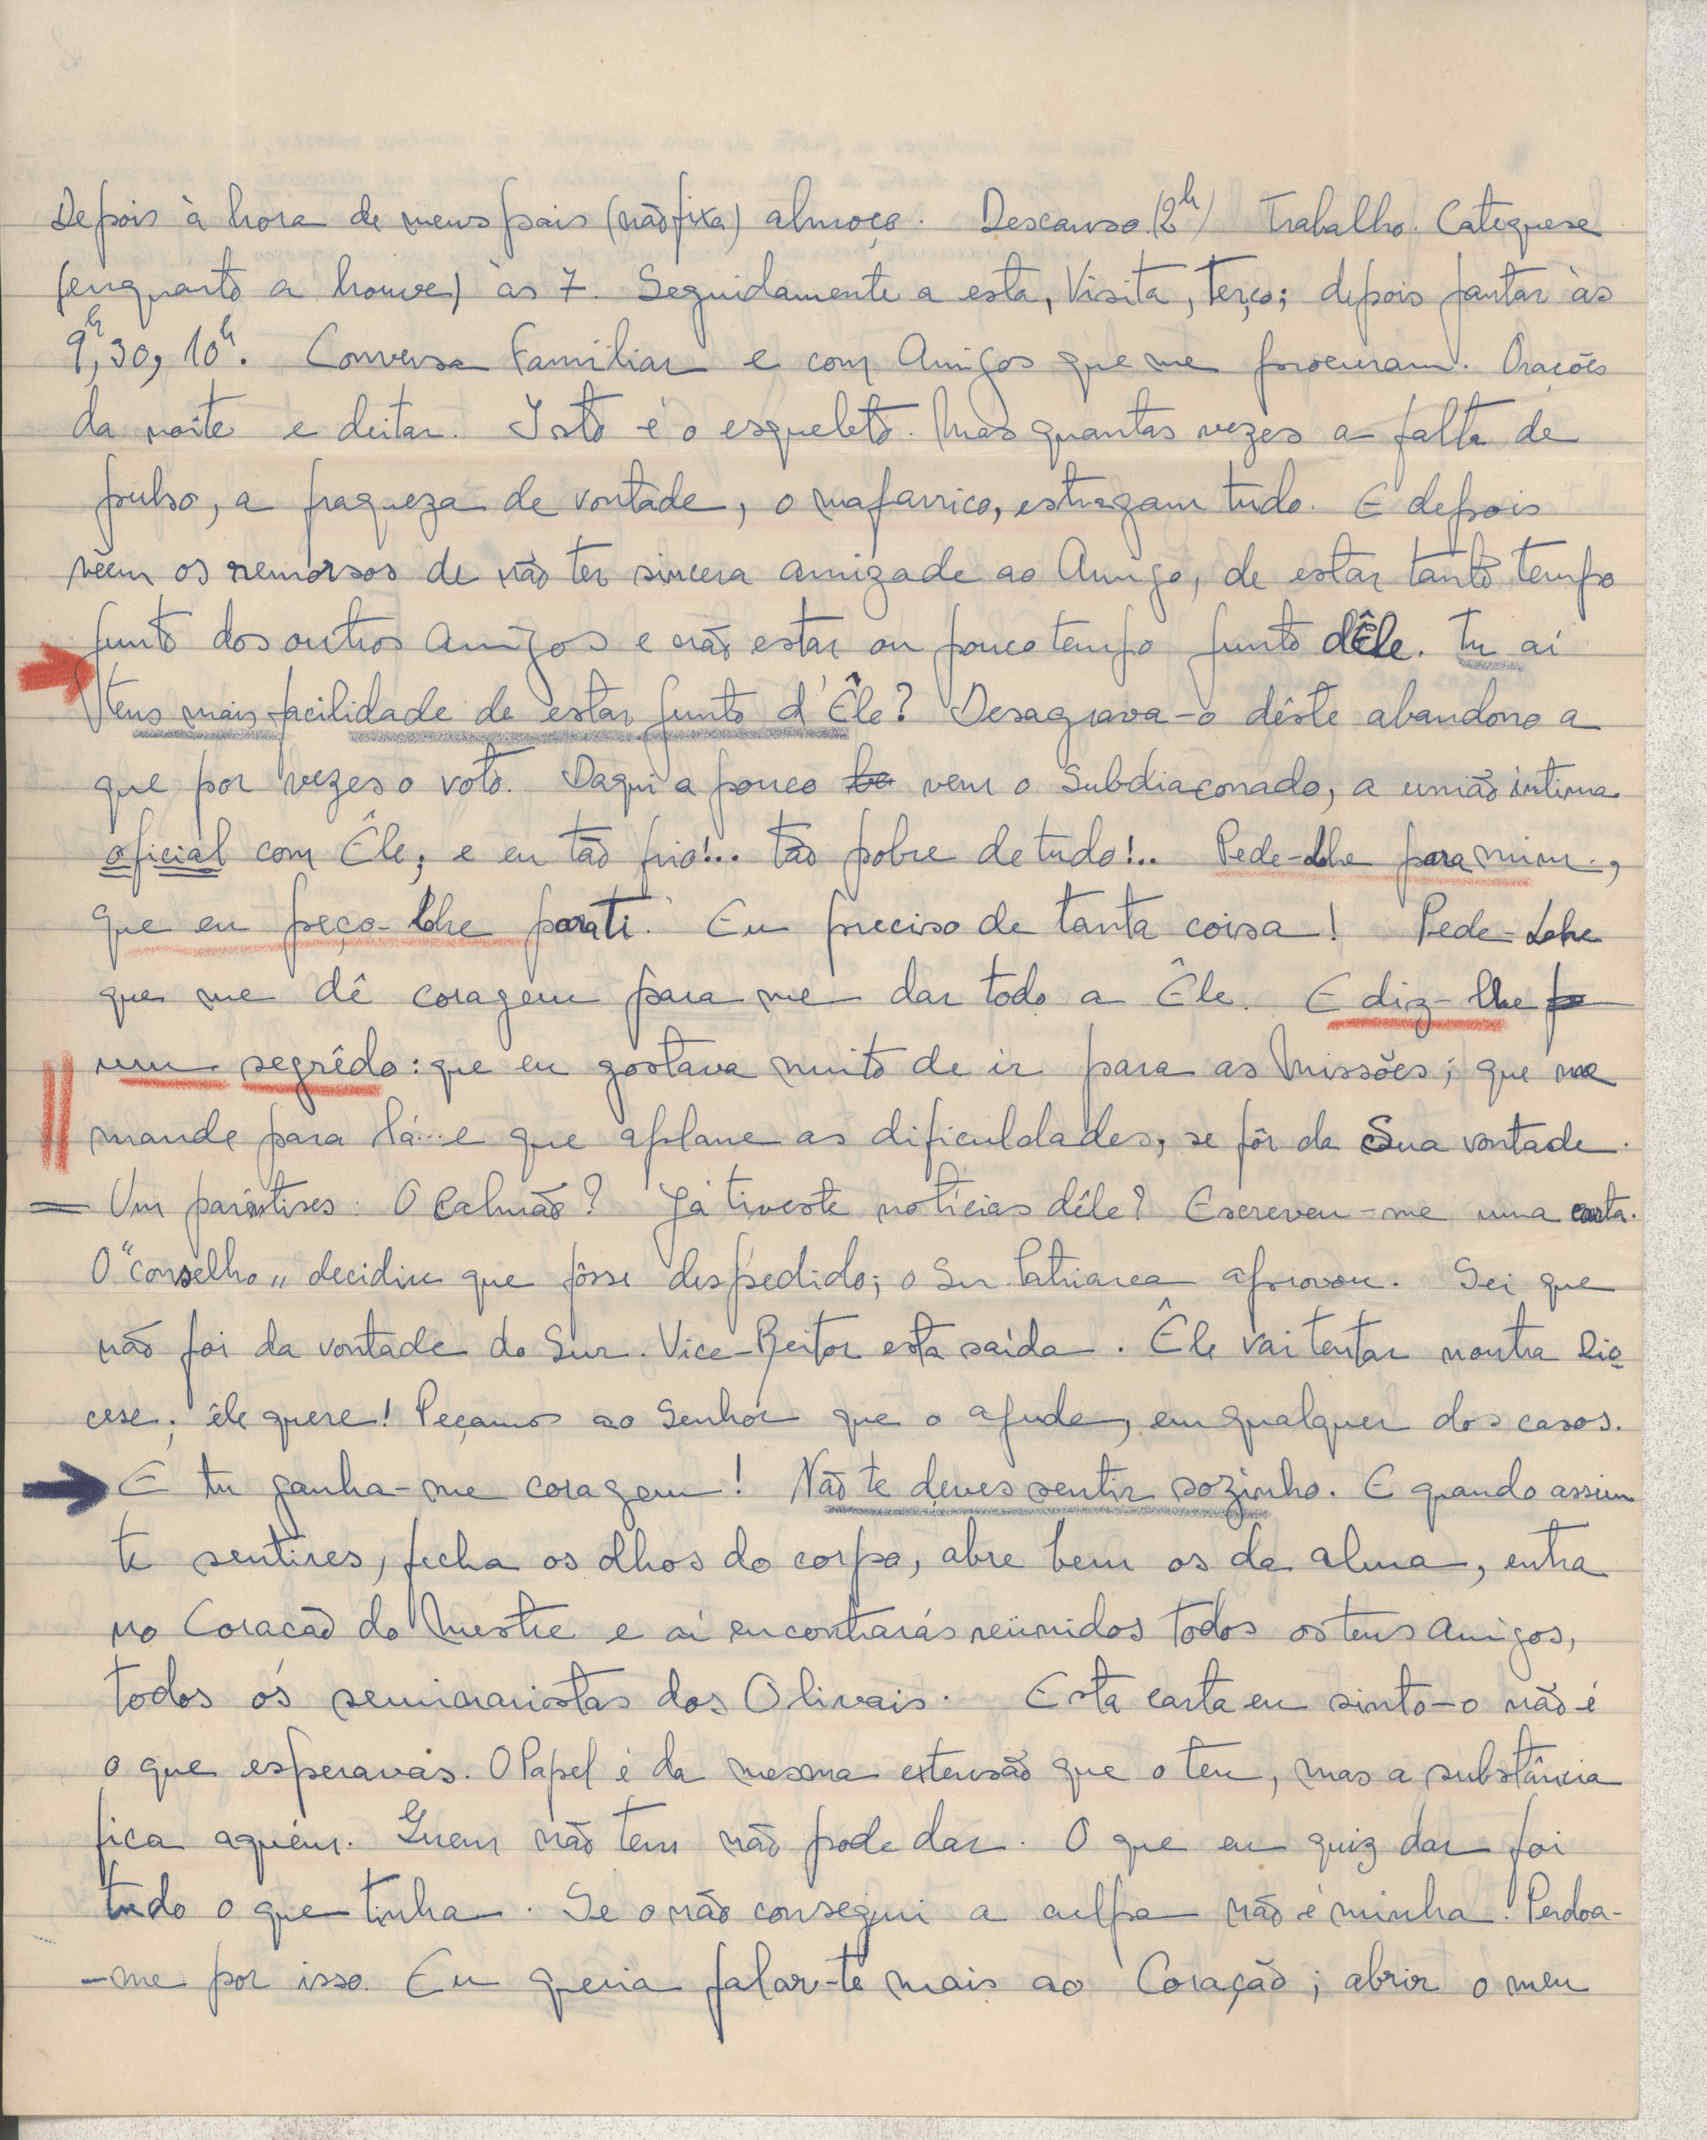 Depois à hora de meus pais (não fixa) almoço. Descanso (2h) Trabalho. Catequese
(enquanto a houve) às 7. Seguidamente a esta, Visita, Terço; depois jantar às
9h,30, 10h. Conversa Familiar e com Amigos que me procuram. Orações
da noite e deitar. Isto é o esqueleto. Mas quantas vezes a falta de
pulso, a fraqueza de vontade, o mafarrico, estragam tudo. E depois
vêem os remorsos de não ter sincera amizade ao Amigo, de estar tanto tempo
junto dos outros Amigos e não estar ou pouco tempo junto dÊle. Tu aí
tens mais facilidade de estar junto d'Êle? Desagrava-o dêste abandono a
que por vezes o voto. Daqui a pouco vem o Subdiaconado, a união íntima
oficial com Êle, e eu tão frio!.. tão pobre de tudo!.. Pede-Lhe para mim.,
que eu peço-Lhe para ti. Eu preciso de tanta coisa! Pede-Lhe
que me dê coragem para me dar todo a Êle. E diz-Lhe
um segrêdo: que eu gostava muito de ir para as Missões; que me
mande para lá... e que aplane as dificuldades, se fôr da Sua vontade.
= Um parêntises: O Calmão? Já tiveste notícias dêle? Escreveu-me uma carta.
O "conselho„ decidiu que fôsse despedido; o Snr Patriarca aprovou. Sei que
não foi da vontade do Snr. Vice-Reitor esta saída. Êle vai tentar noutra Dio
cese; êle quere! Peçamos ao Senhor que o ajude, em qualquer dos casos.
E tu ganha-me coragem! Não te deves sentir sozinho. E quando assim
te sentires, fecha os olhos do corpo, abre bem os da alma, entra
no Coracão do Mestre e aí encontrarás reünidos todos os teus Amigos,
todos os seminaristas dos Olivais. Esta carta eu sinto-o não é
o que esperavas. O Papel é da mesma extensão que o teu, mas a substância
fica aquém. Quem não tem não pode dar. O que eu quiz dar foi
tudo o que tinha. Se o não consegui a culpa não é minha. Perdoa-
-me por isso. Eu queria falar-te mais ao Coração; abrir o meu